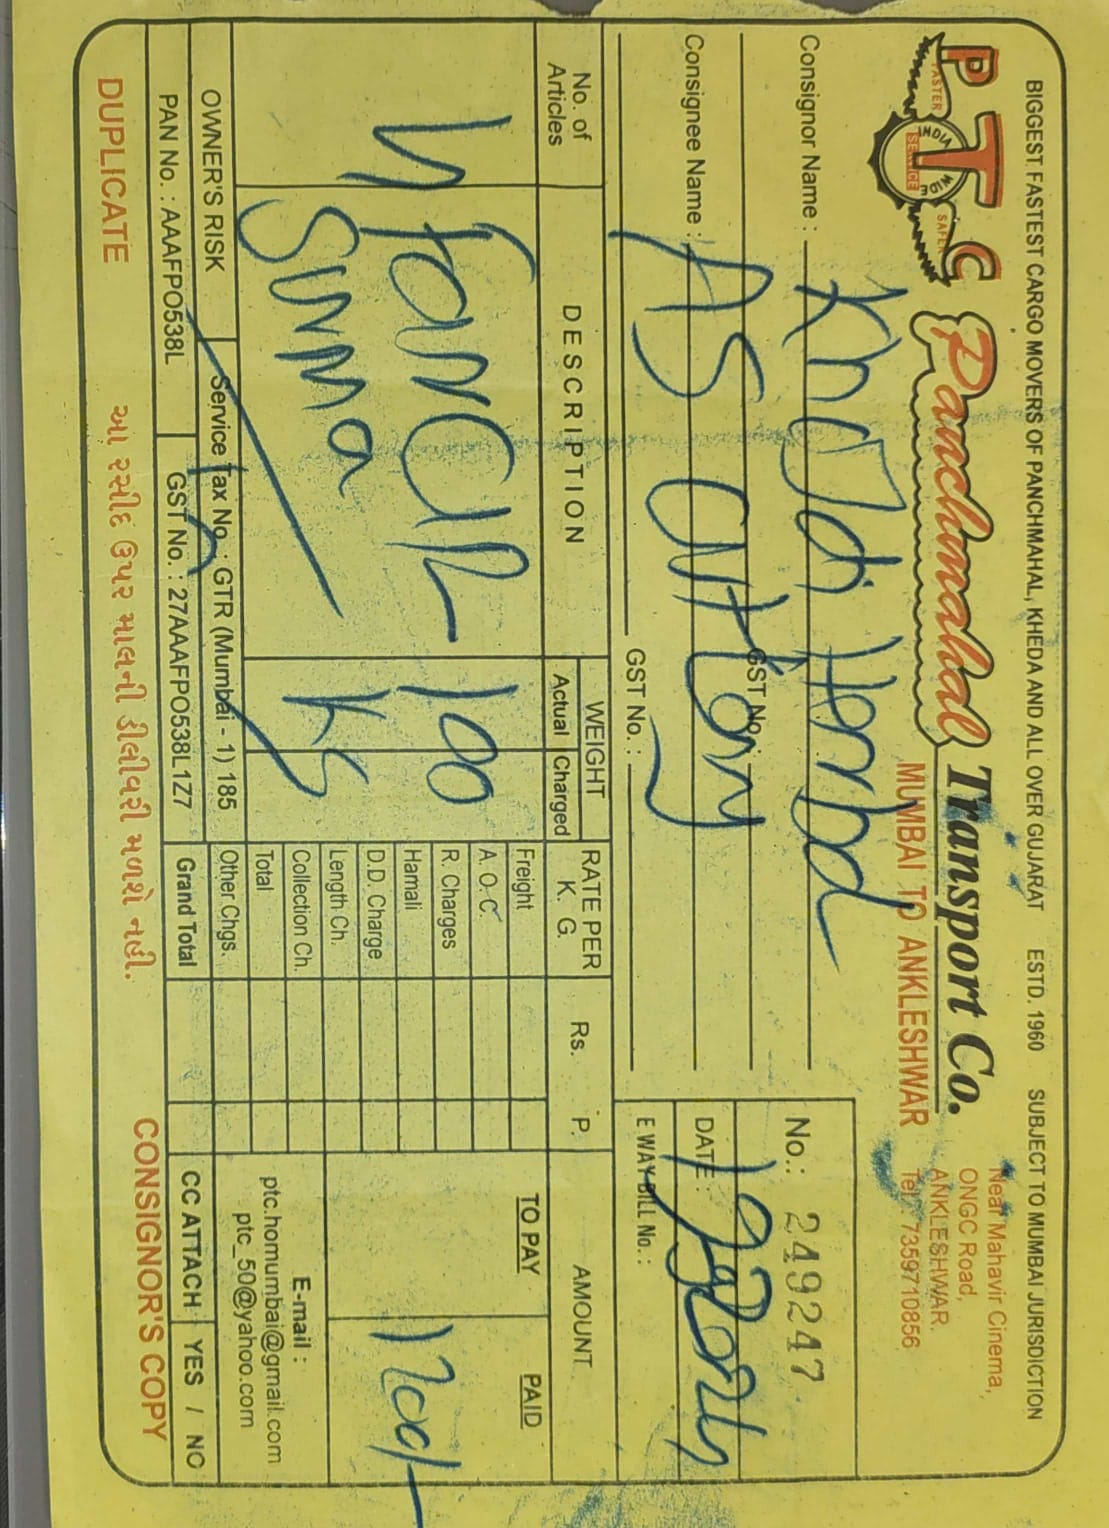 BIGGEST, FASTEST CARGO MOVERS OF PANCHMAHAL, KHEDA AND ALL OVER GUJARAT ESTD. 1960 SUBJECT TO MUMBAI JURISDICTION
PTC
FASTER
SAFER
INDIA WIDE
SERVICE
Panchmahal Transport Co.
MUMBAI TO ANKLESHWAR
Near Mahavir Cinema,
ONGC Road,
ANKLESHWAR.
Tel.: 7359710856
Consignor Name :
GST No. :
Consignee Name : AS
GST No. :
No.: 249247
DATE :
E WAY BILL No. :
No. of Articles
DESCRIPTION
WEIGHT
Actual
Charged
RATE PER K. G.
Rs.
P.
AMOUNT
TO PAY
PAID
190
KS
1200/-
Freight
A. O. C.
R. Charges
Hamali
D.D. Charge
Length Ch.
Collection Ch.
Total
Other Chgs.
Grand Total
E-mail :
ptc.homumbai@gmail.com
ptc_50@yahoo.com
OWNER'S RISK
Service Tax No. : GTR (Mumbai - 1) 185
PAN No. : AAAFPO538L
GST No. : 27AAAFPO538L1Z7
CC ATTACH YES / NO
DUPLICATE
આ રસીદ ઉપર માલની ડીલીવરી મળશે નહી.
CONSIGNOR'S COPY